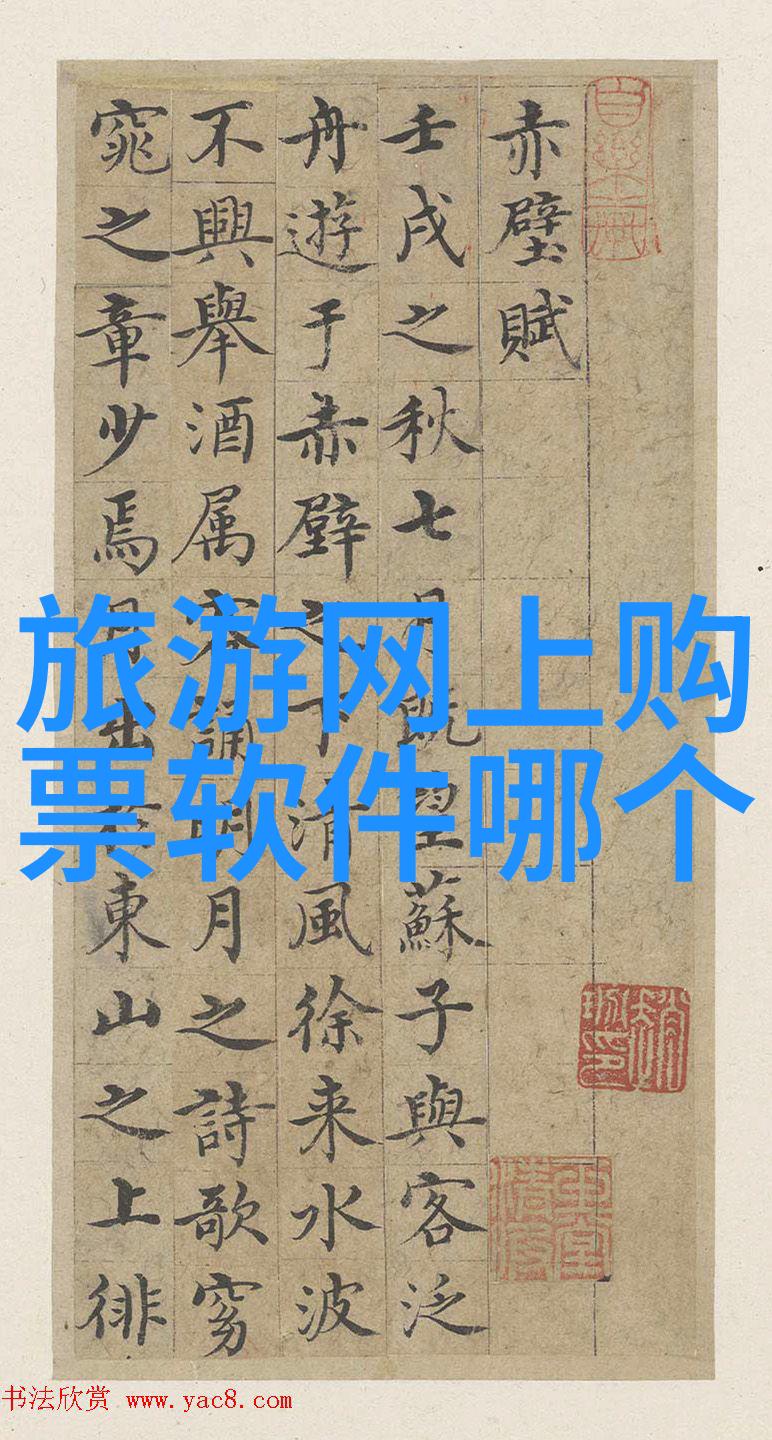 赤壁賦
壬戌之秋七月既望蘇子與客泛
舟遊于赤壁之下清風徐来水波
不興舉酒属客誦明月之詩歌窈
窕之章少焉月出於東山之上徘
旅游网上购
票软件哪个
书法欣赏 www.yac8.com